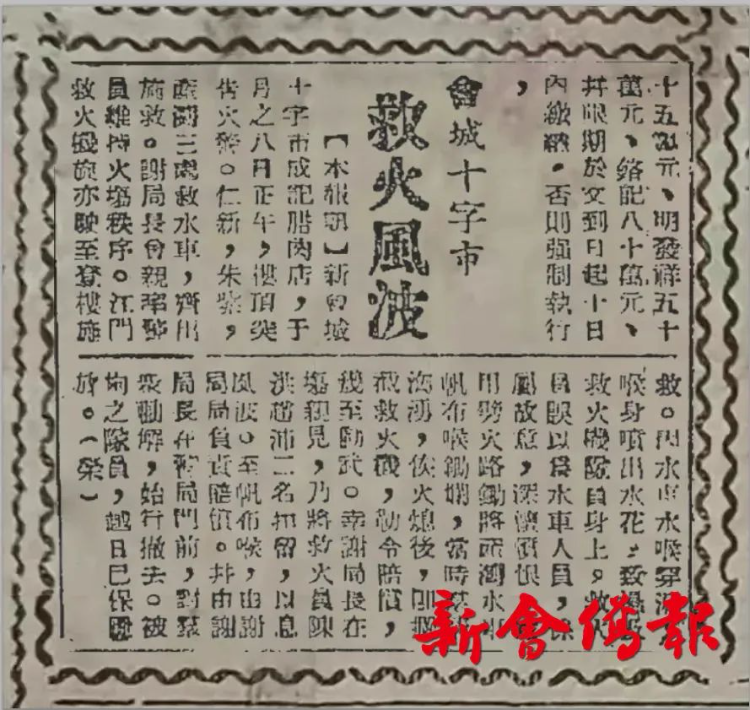 十五萬元、明發祥五十
萬元、銘記八十萬元、
幷限期於文到日起十日
內繳，否則强制執行
，
會城十字市
救火風波
【本報訊】新會城
十字市成記腊肉店，于
月之八日正午，樓頂突
告火警。仁新，朱紫，
瀾三處救水車，齊出
施救。謝局長曾親率警
員維持火塲秩序。江門
救火機旋亦駛至登樓施
救。因水車水喉穿
喉身噴出水花，致
救火機隊員身上，救火
員誤以爲水車人員，係
屬故意，深懷憤恨
用劈火路鋤將西瀾水
帆布喉鋤爛，當時
洶湧，俟火熄後，則
截救火機，勒令賠償，
幾至動武。幸謝局長在
塲親見，乃將救火員陳
洪趙沛二名扣留，以息
風波。至帆布喉，由謝
局局負責賠償。幷由謝
局長在警局門前，對羣
衆勸解，始行撤去。被
拘之隊員，越日已保釋
放。（榮）
新會僑報